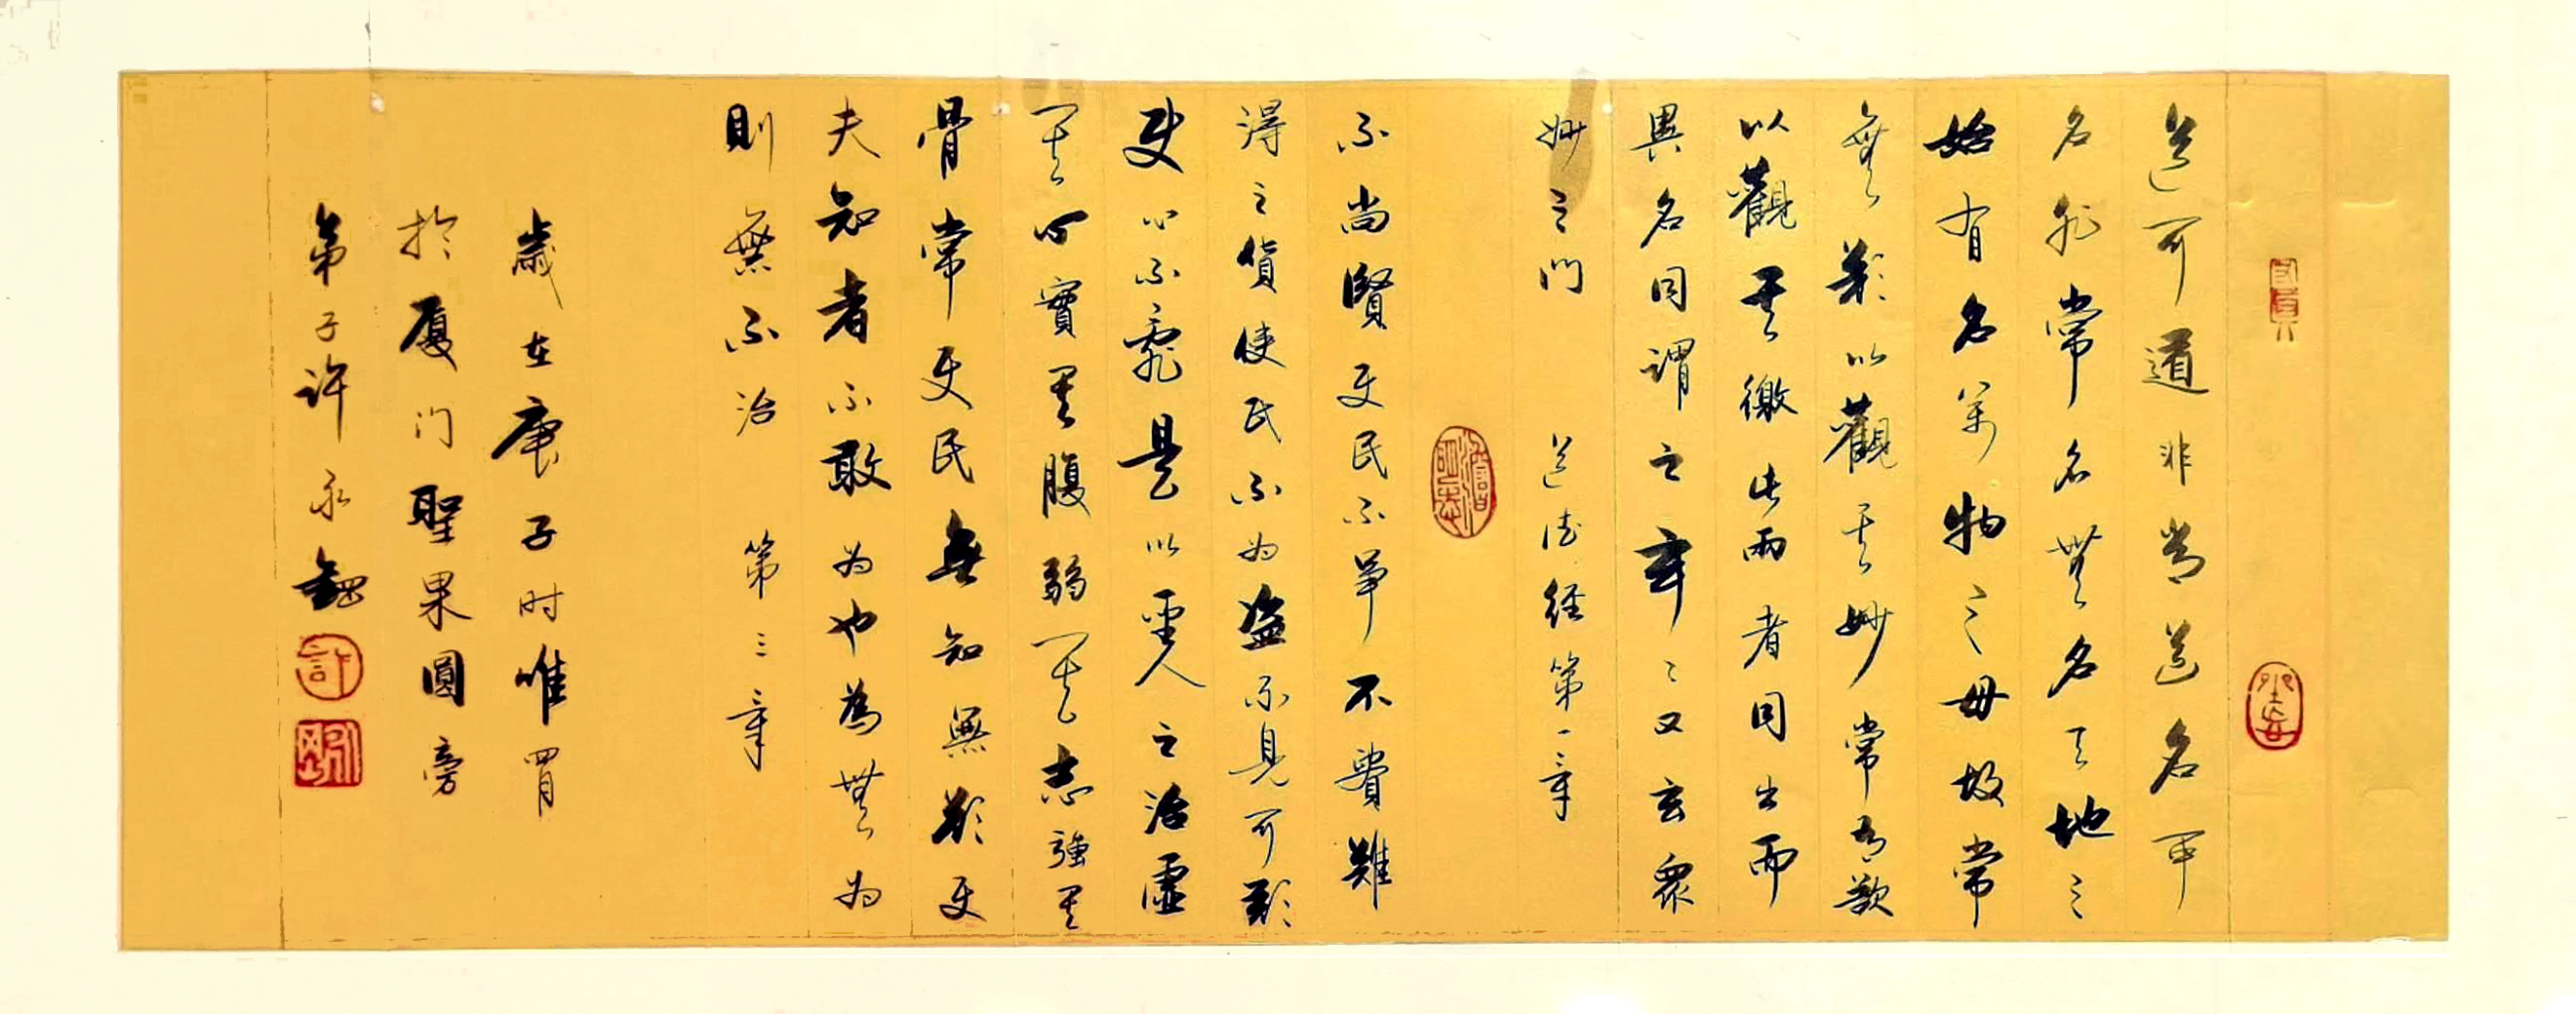 道可道非常道名可
名非常名無名天地之
始有名萬物之母故常
無欲以觀其妙常有欲
以觀其徼此兩者同出而
異名同謂之玄〻又玄眾
妙之門 道德经第一章
不尚賢使民不爭不貴難
得之貨使民不为盗不見可欲
使心不亂是以聖人之治虛
其心實其腹弱其志強其
骨常使民無知無欲使
夫知者不敢为也為無为
則無不治 第三章
歲在庚子时唯
於厦门聖果圓旁
弟子许永
許